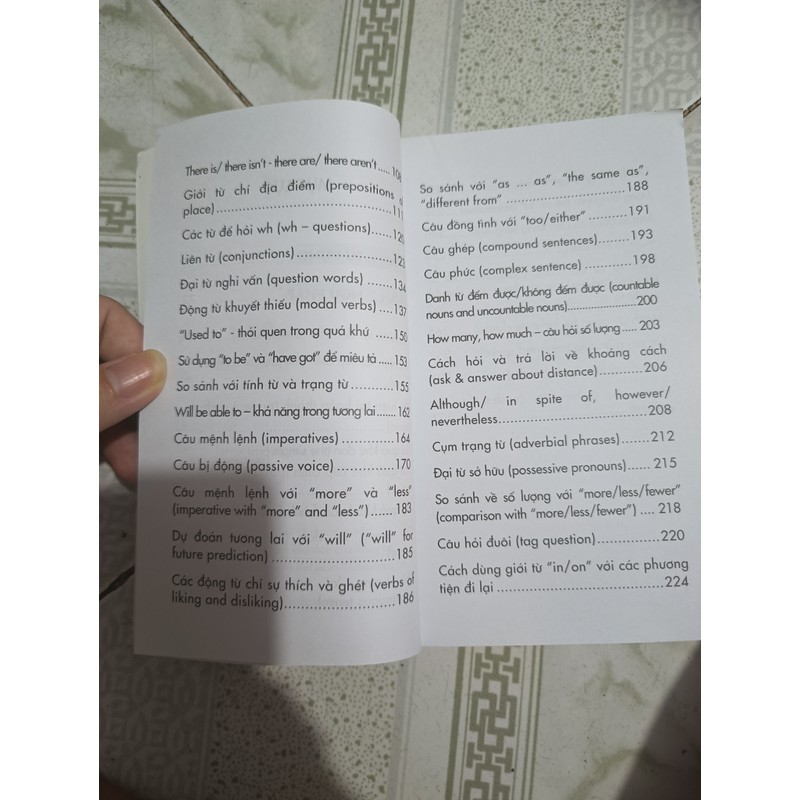 There is/ there isn't - there are/ there aren't.....
Giới từ chỉ địa điểm (prepositions
place)..............................
Các từ để hỏi wh (wh – questions)......
Liên từ (conjunctions)......................
Đại từ nghi vấn (question words) ....134
Động từ khuyết thiếu (modal verbs) ....137
"Used to" - thói quen trong quá khứ .....150
Sử dụng "to be" và "have got" để miêu tả ......153
So sánh với tính từ và trạng từ ...........155
Will be able to – khả năng trong tương lai.......162
Câu mệnh lệnh (imperatives) ............164
Câu bị động (passive voice) .............170
Câu mệnh lệnh với "more" và "less"
(imperative with "more" and "less")......183
Dự đoán tương lai với "will" ("will" for
future prediction) ...........................185
Các động từ chỉ sự thích và ghét (verbs of
liking and disliking)..........................186
So sánh với "as ... as", "the same as",
"different from" ............................188
Câu đồng tình với "too/either" .........191
Câu ghép (compound sentences)........193
Câu phức (complex sentence) ............198
Danh từ đếm được/không đếm được (countable
nouns and uncountable nouns).......................200
How many, how much – câu hỏi số lượng..... 203
Cách hỏi và trả lời về khoảng cách
(ask & answer about distance)............206
Although/ in spite of, however/
nevertheless..................................208
Cụm trạng từ (adverbial phrases).......212
Đại từ sở hữu (possessive pronouns)...... 215
So sánh về số lượng với "more/less/fewer"
(comparison with "more/less/fewer") .... 218
Câu hỏi đuôi (tag question)...............220
Cách dùng giới từ "in/on" với các phương
tiện đi lại ......................................224